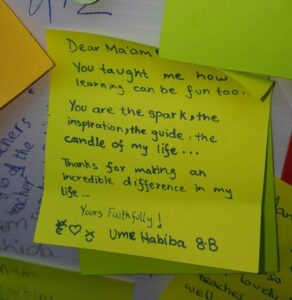 Dear Ma'am!
You taught me how
learning can be fun too.
You are the spark, the
inspiration, the guide, the
candle of my life...
Thanks for making an
incredible difference in my
life...
Yours Faithfully!
Ume Habiba 8-B
teachers
of the
teacher
lovely
well